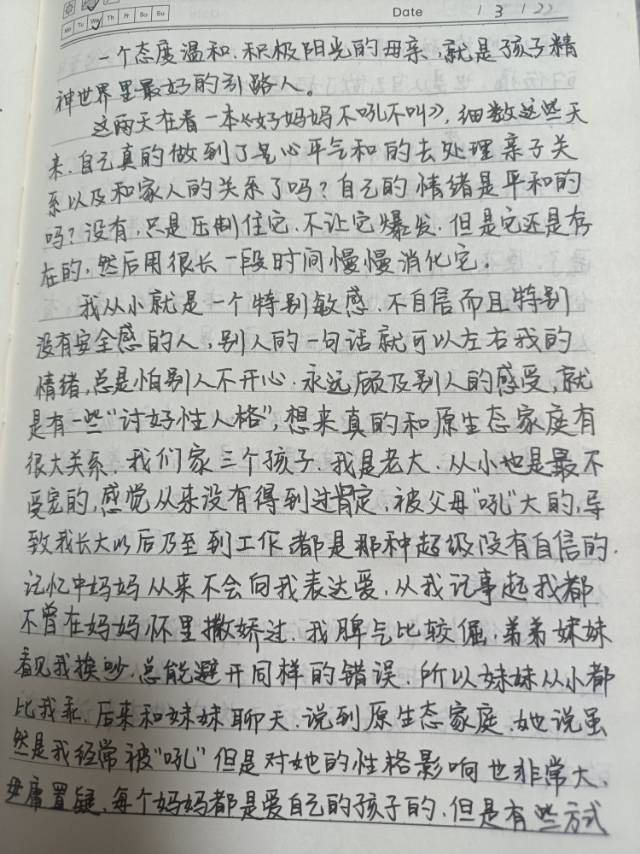 Mo Tu We Th Fr Sa Su
Date 1 3 1 22
一个态度温和、积极阳光的母亲,就是孩子精
神世界里最好的引路人。
这两天在看一本《好妈妈不吼不叫》,细数这些天
来,自己真的做到了是心平气和的去处理亲子关
系以及和家人的关系了吗?自己的情绪是平和的
吗?没有,只是压制住它,不让它爆发,但是它还是存
在的,然后用很长一段时间慢慢消化它。
我从小就是一个特别敏感、不自信而且特别
没有安全感的人,别人的一句话就可以左右我的
情绪,总是怕别人不开心,永远顾及别人的感受,就
是有一些“讨好性人格”,想来真的和原生态家庭有
很大关系,我们家三个孩子,我是老大,从小也是最不
受宠的,感觉从来没有得到过肯定,被父母“吼”大的,导
致我长大以后乃至到工作都是那种超级没有自信的.
记忆中妈妈从来不会向我表达爱,从我记事起我都
不曾在妈妈怀里撒娇过,我脾气比较倔,弟弟妹妹
看见我挨吵,总能避开同样的错误,所以妹妹从小都
比我乖,后来和妹妹聊天,说到原生态家庭,她说虽
然是我经常被“吼”但是对她的性格影响也非常大、
毋庸置疑,每个妈妈都是爱自己的孩子的,但是有些方式